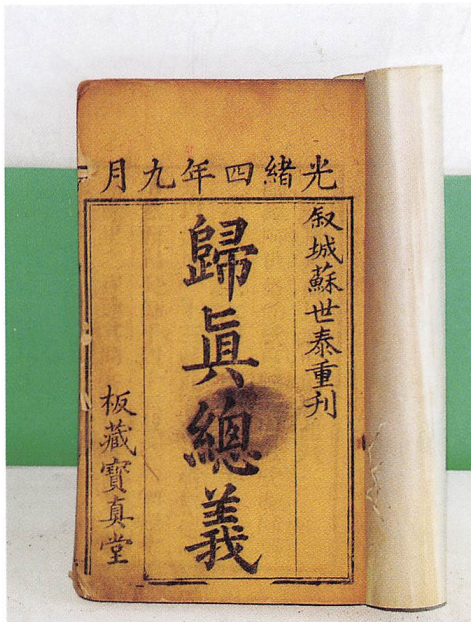 光緒四年九月
叙城蘇世泰重刋
歸眞總義
板藏寶真堂